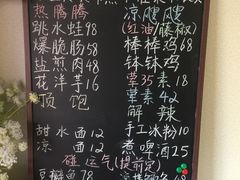 热腾腾
跳水蛙98
爆脆肠58
盐煎肉48
花洋芋16
顶饱
甜水面12
凉面12
凉飕飕
(红油/藤椒)
棒棒鸡68
钵钵鸡
荤35 素18
荤素42
解辣
手工冰粉10
煮啤酒25
碰运气(提前定)
豆瓣鱼78